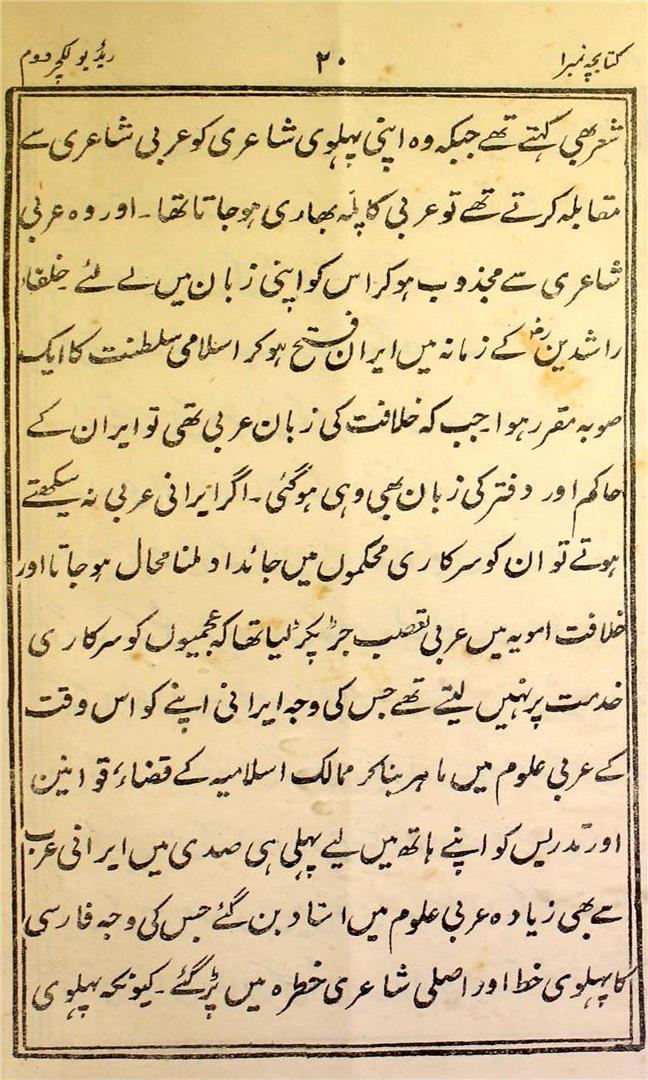 کتابچہ نمبرا ۲۰ ریڈیو لکچر دوم
شعر بھی کہتے تھے جبکہ وہ اپنی پہلوی شاعری کو عربی شاعری سے
مقابلہ کرتے تھے تو عربی کا پلّہ بھاری ہو جاتا تھا۔ اور وہ عربی
شاعری سے مجذوب ہو کر اس کو اپنی زبان میں لے لئے خلفاء
راشدینؓ کے زمانہ میں ایران فتح ہو کر اسلامی سلطنت کا ایک
صوبہ مقرر ہوا جب کہ خلافت کی زبان عربی تھی تو ایران کے
حاکم اور دفتر کی زبان بھی وہی ہو گئی۔ اگر ایرانی عربی نہ سیکھتے
ہوتے تو ان کو سرکاری محکموں میں جائداد ملنا محال ہو جاتا اور
خلافت امویہ میں عربی تعصب جڑ پکڑ لیا تھا کہ عجمیوں کو سرکاری
خدمت پر نہیں لیتے تھے جس کی وجہ ایرانی اپنے کو اس وقت
کے عربی علوم میں ماہر بنا کر ممالک اسلامیہ کے قضاء، قوانین
اور تدریس کو اپنے ہاتھ میں لیے پہلی ہی صدی میں ایرانی عرب
سے بھی زیادہ عربی علوم میں استاد بن گئے جس کی وجہ فارسی
کا پہلوی خط اور اصلی شاعری خطرہ میں پڑ گئے۔ کیونکہ پہلوی